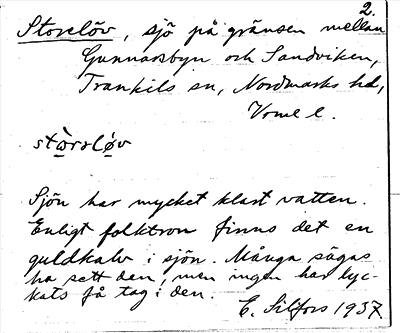 2.
Storelöv, sjö på gränsen mellan
Gunnarsbyn och Sandviken,
Trankils sn, Nordmarks hd,
Vrml l.
stòrsløv
Sjön har mycket klart vatten.
Enligt folktron finns det en
guldkalv i sjön. Många sägas
ha sett den, men ingen har lyc-
kats få tag i den.
E. Silfors 1937